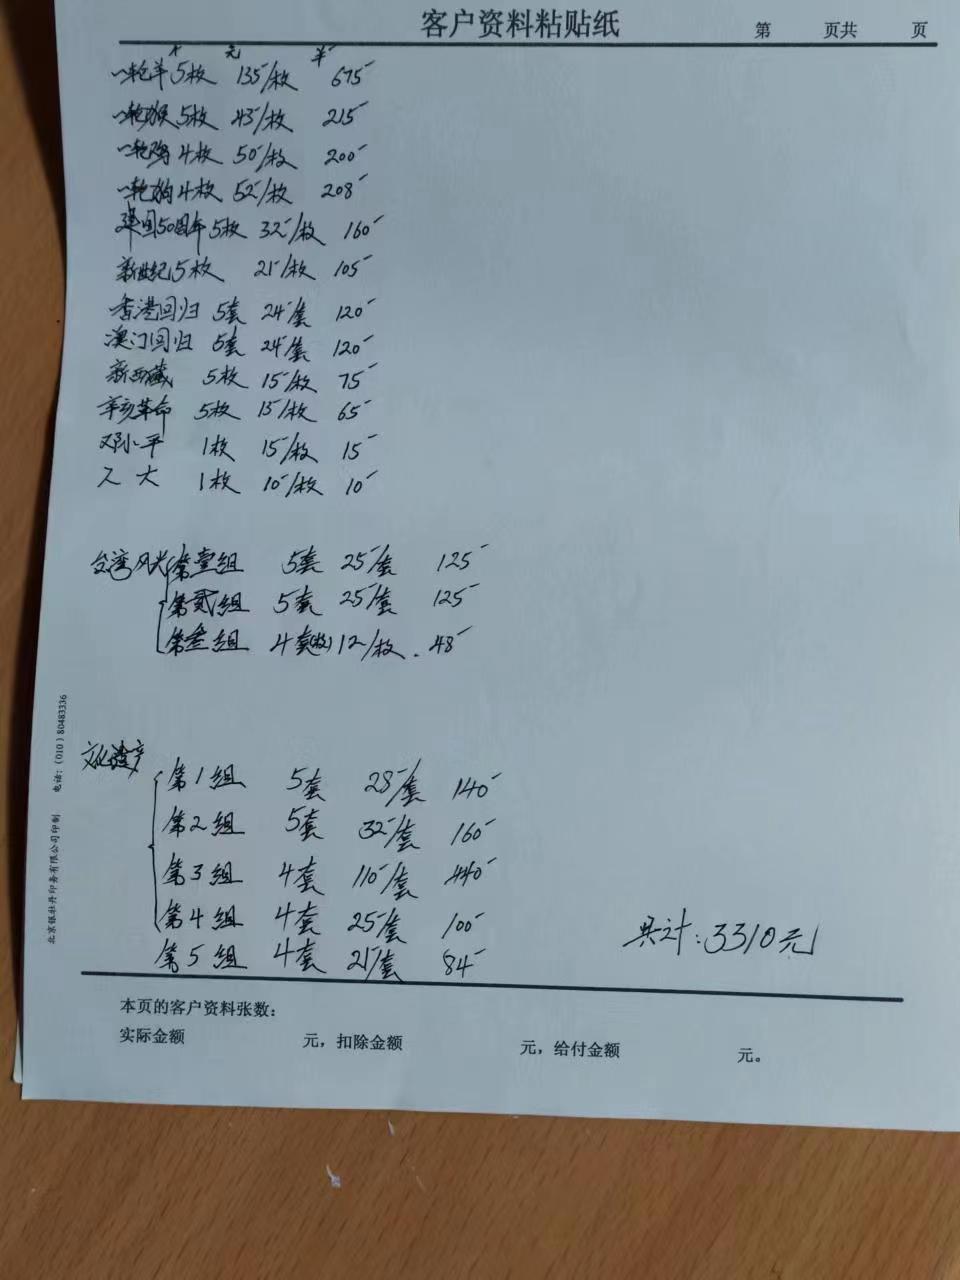 客户资料粘贴纸 第 页共 页
元
一轮羊 5枚 135/枚 675
一轮猴 5枚 43/枚 215
一轮鸡 4枚 50/枚 200
一轮狗 4枚 52/枚 208
建国50周年 5枚 32/枚 160
新世纪 5枚 21/枚 105
香港回归 5套 24/套 120
澳门回归 5套 24/套 120
新西藏 5枚 15/枚 75
辛亥革命 5枚 13/枚 65
邓小平 1枚 15/枚 15
人大 1枚 10/枚 10
台湾风光 第壹组 5套 25/套 125
第贰组 5套 25/套 125
第叁组 4套(枚) 12/枚. 48
文化遗产
第1组 5套 28/套 140
第2组 5套 32/套 160
第3组 4套 110/套 440
第4组 4套 25/套 100
第5组 4套 21/套 84
共计:3310元
本页的客户资料张数:
实际金额 元,扣除金额 元,给付金额 元。
北京银牡丹印务有限公司印制 电话:(010)80483336